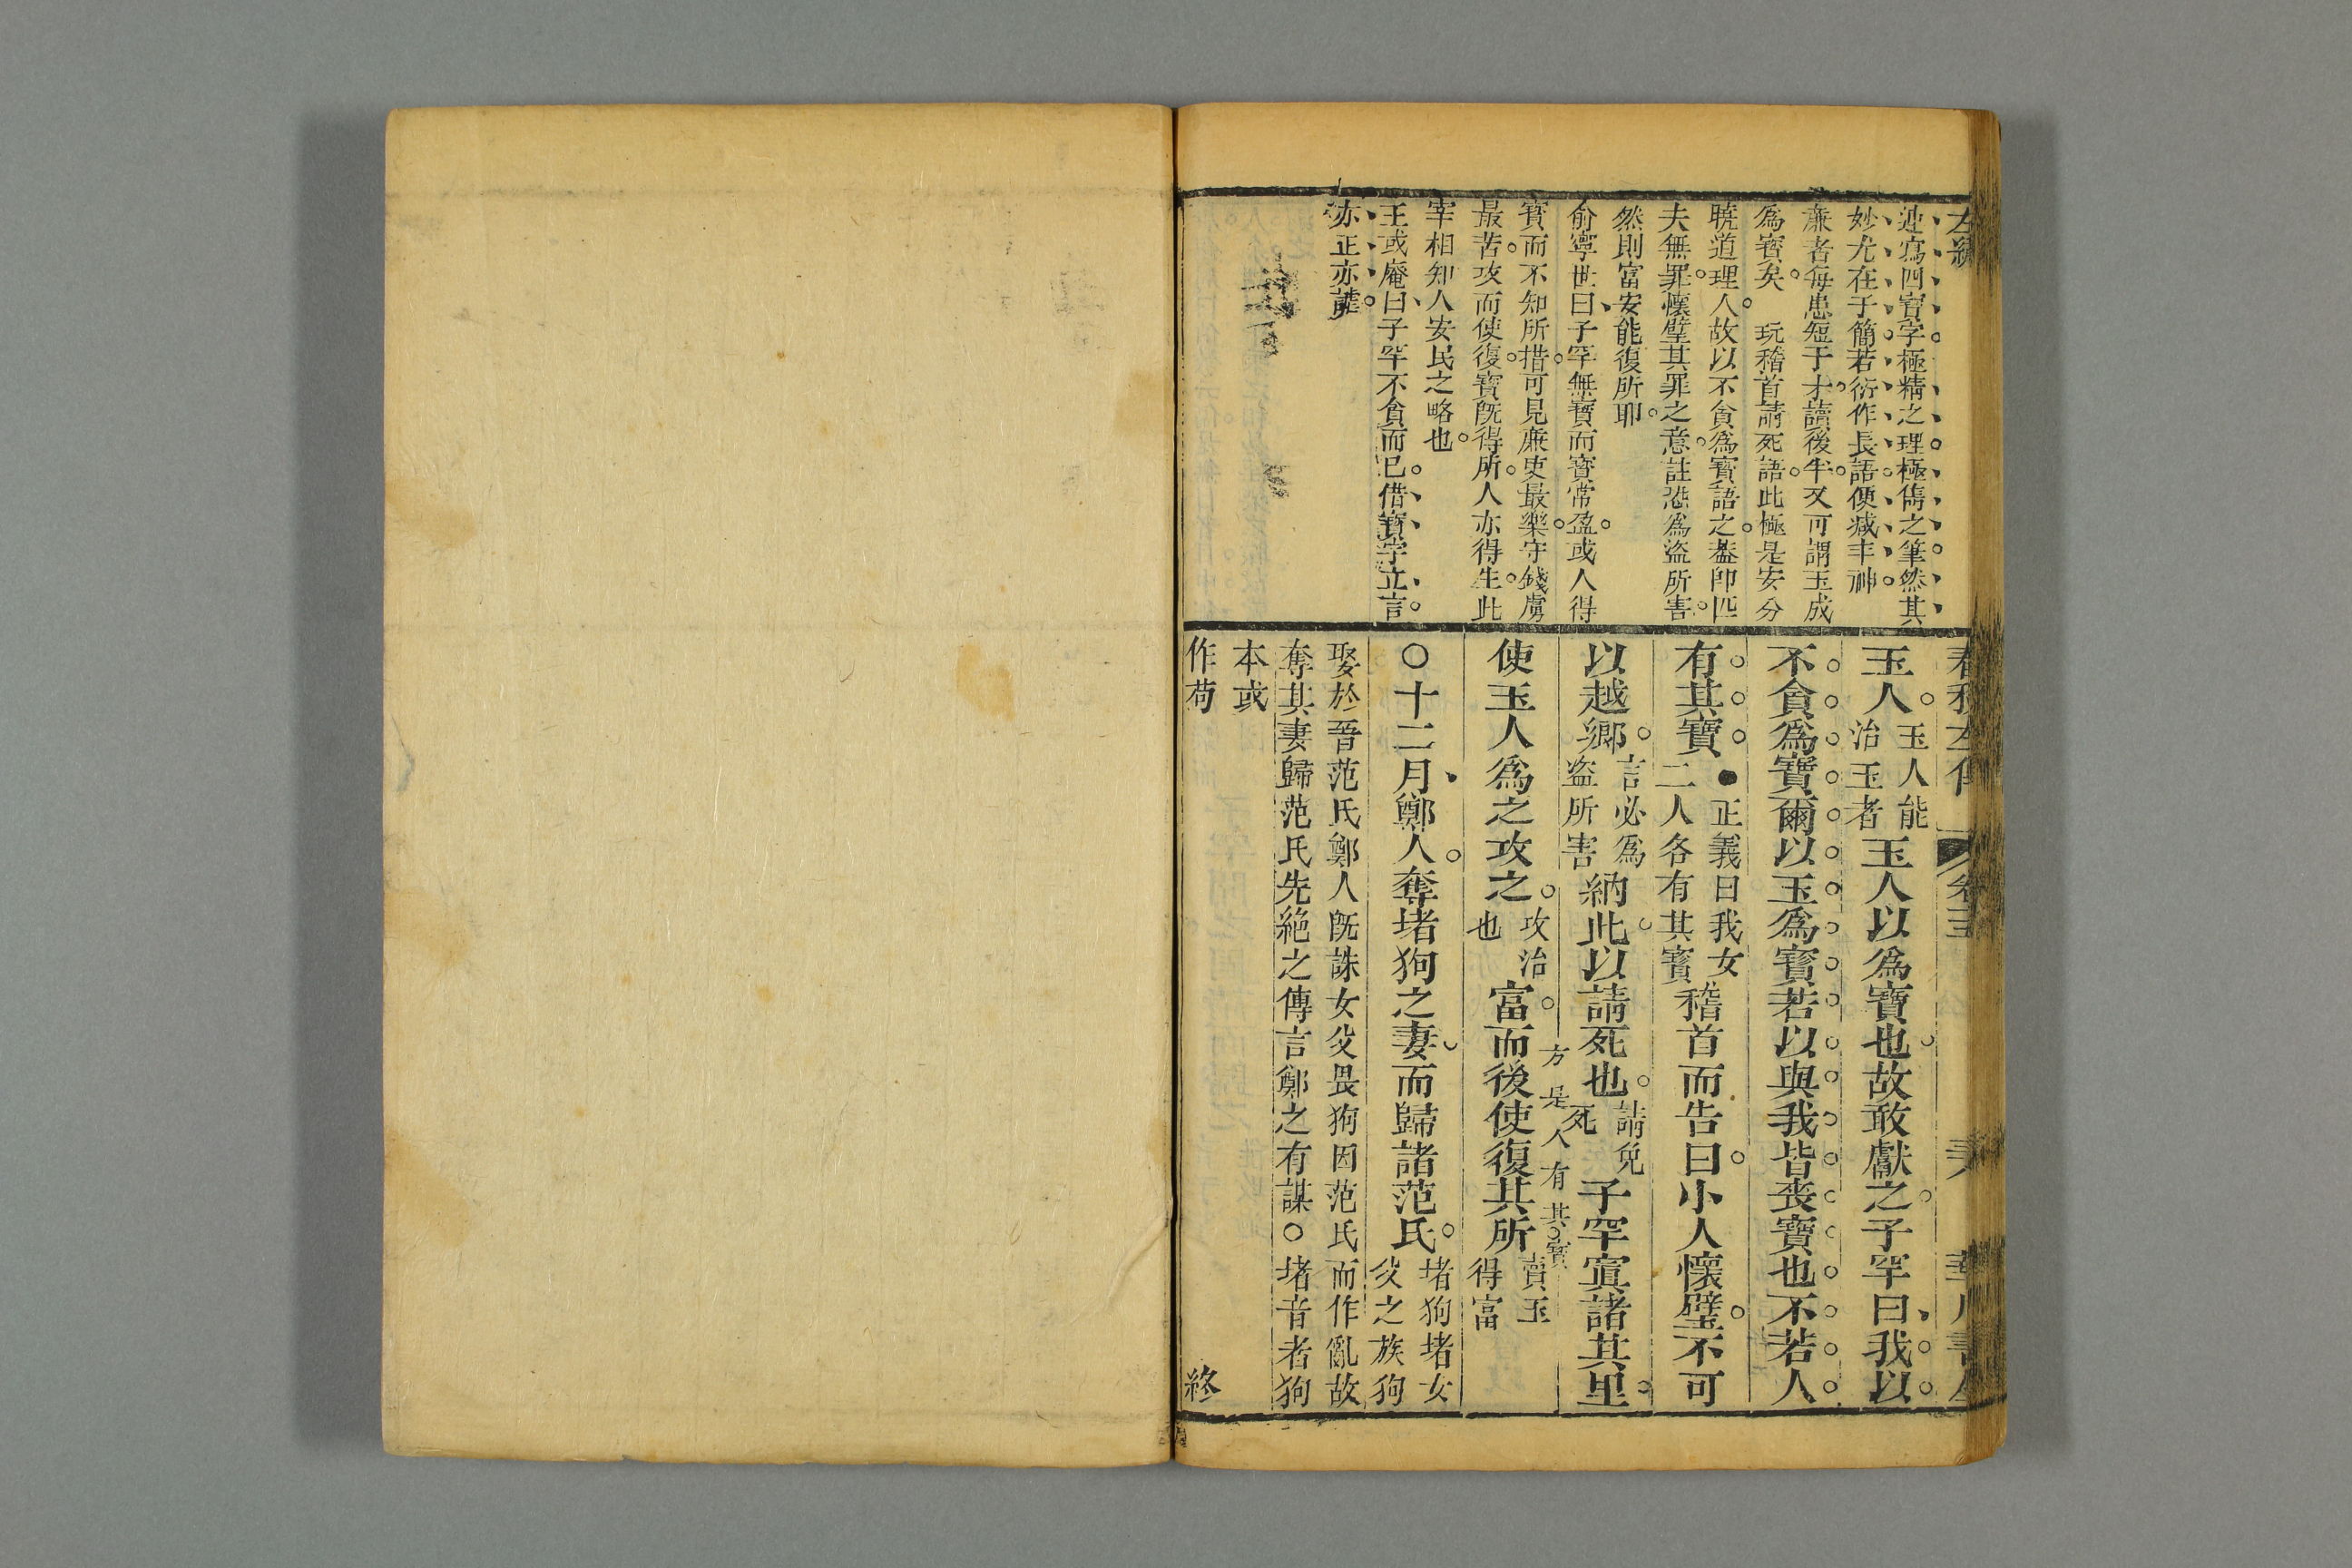 左繡
連寫四寶字極精之理極雋之筆然其
妙尤在于簡若衍作長語便減丰神
廉者每患短于才讀後半又可謂玉成
為寶矣　玩稽首請死語此極是安分
曉道理人故以不貪為寶語之葢卽匹
夫無罪懷璧其罪之意註恐為盜所害
然則富安能復所耶
俞寧世曰子罕無寶而寶常盈或人得
寶而不知所措可見廉吏最樂守錢虜
最苦攻而使復寶旣得所人亦得生此
宰相知人安民之略也
王或庵曰子罕不貪而已借寶字立言
亦正亦諧
春秋左傳
玉人玉人能治玉者玉人以爲寶也故敢獻之子罕曰我以
不貪爲寶爾以玉爲寶若以與我皆喪寶也不若人
有其寶●正義曰我女二人各有其寶稽首而告曰小人懷璧不可
以越鄉言必爲盜所害納此以請死也請免死子罕寘諸其里
方是人有其寶
使玉人爲之攻之攻治也富而後使復其所賣玉得富
○十二月鄭人奪堵狗之妻而歸諸范氏堵狗堵女父之族狗
娶於晉范氏鄭人旣誅女父畏狗因范氏而作亂故
奪其妻歸范氏先絶之傳言鄭之有謀○堵音者狗
本或
作苟
終